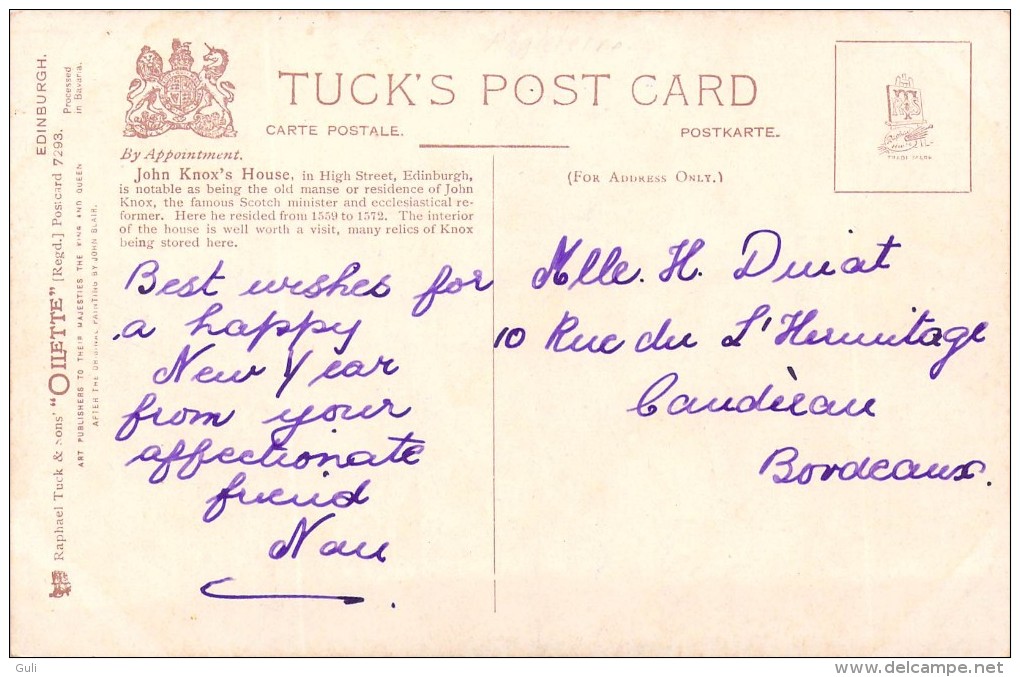 EDINBURGH.
Processed
in Bavaria.
Raphael Tuck & Sons' "OILETTE" [Regd.] Postcard 7293.
ART PUBLISHERS TO THEIR MAJESTIES THE KING AND QUEEN
AFTER THE ORIGINAL PAINTING BY JOHN BLAIR.
TUCK'S POST CARD
CARTE POSTALE.
POSTKARTE.
By Appointment.
John Knox's House, in High Street, Edinburgh,
is notable as being the old manse or residence of John
Knox, the famous Scotch minister and ecclesiastical re-
former. Here he resided from 1559 to 1572. The interior
of the house is well worth a visit, many relics of Knox
being stored here.
(FOR ADDRESS ONLY.)
TRADE MARK
Best wishes for
a happy
New Year
from your
affectionate
friend
Nan
Mlle. H.
10 Rue du L'Hermitage
Caudéran
Bordeaux.
Guli
www.delcampe.net